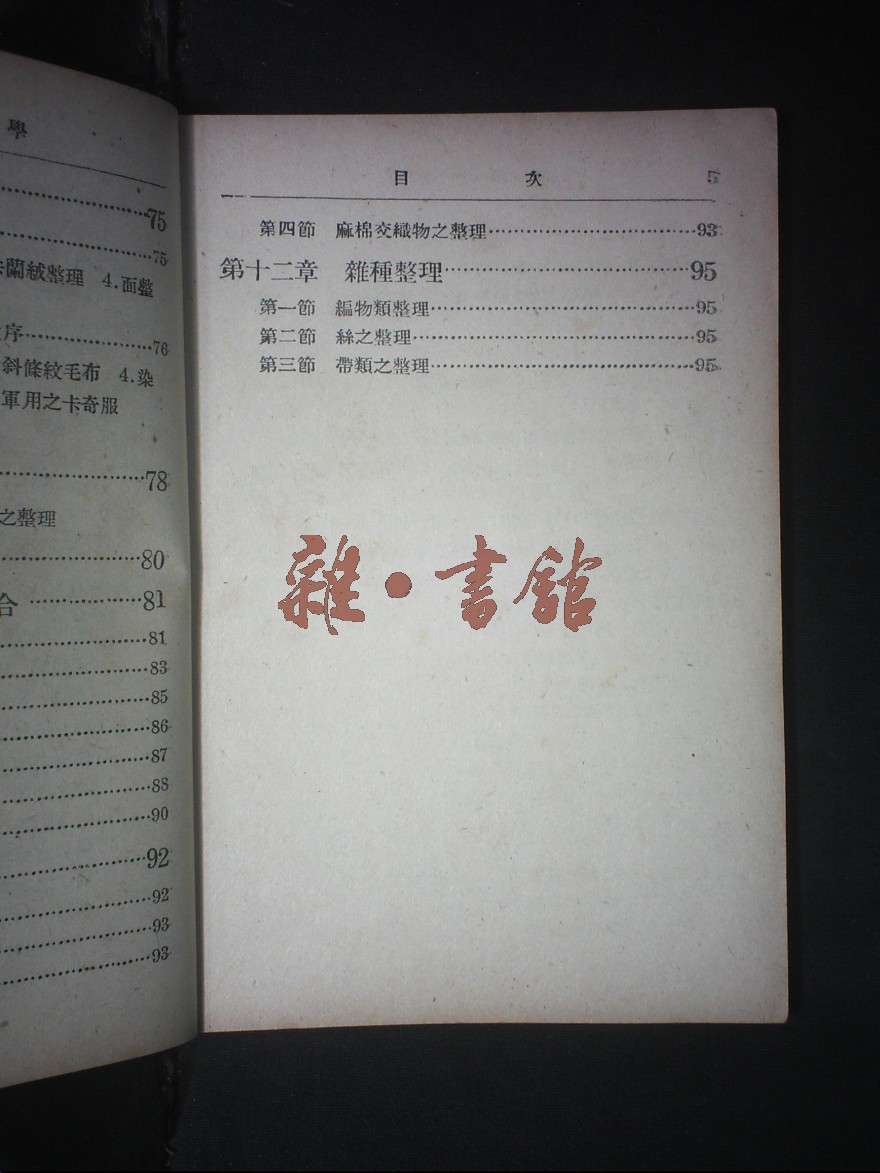 學
75
75
蘭絨整理 4.面整
序 76
斜條紋毛布 4.染
軍用之卡奇服
78
之整理
80
合 81
81
83
85
86
87
88
90
92
92
93
93
目 次 5
第四節 麻棉交織物之整理 93
第十二章 雜種整理 95
第一節 編物類整理 95
第二節 絲之整理 95
第三節 帶類之整理 95
雜・書館